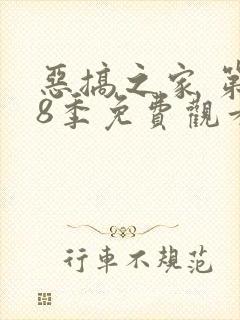 惡搞之家 第
8季免費觀
行車不規范